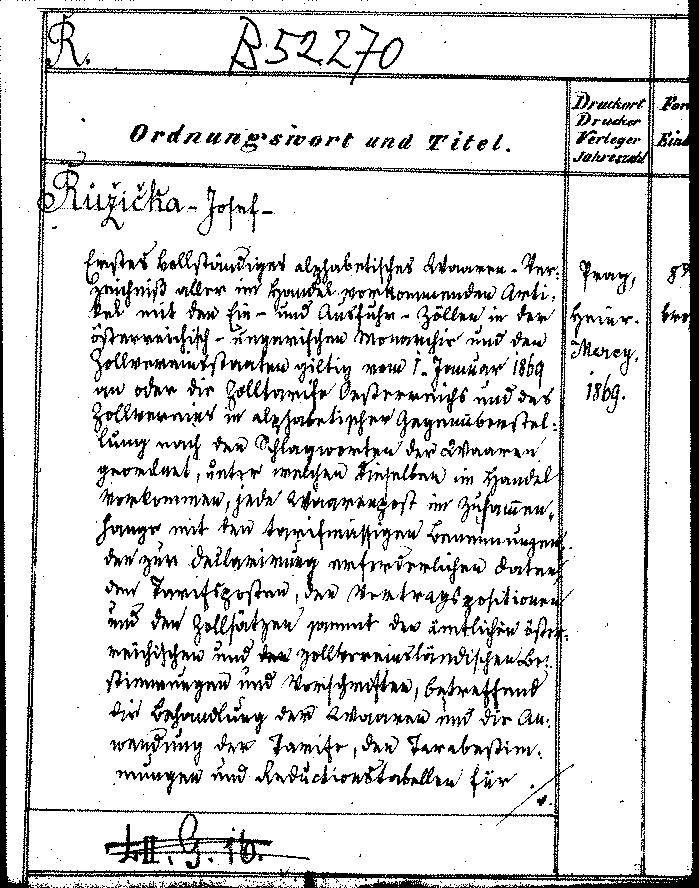 R.
B 52270
Ordnungswort und Titel.
Druckort
Drucker
Verleger
Jahreszahl
For
Einb
Růžička - Josef -
Erstes vollständiges alphabetisches Waaren-Ver-
zeichniß aller im Handel vorkommenden Arti-
kel mit den Ein- und Ausfuhr-Zöllen in der
österreichisch-ungarischen Monarchie und den
Zollvereinsstaaten giltig vom 1. Januar 1869
an oder die Zolltarife Oesterreichs und des
Zollvereines in alphabetischer Gegenüberstel-
lung nach den Schlagworten der Waaren
geordnet, unter welchen dieselben im Handel
vorkommen, jede Waarenpost im Zusammen-
hange mit den tarifmässigen Benennungen
den zur Deklarirung erforderlichen Daten
den Tarifsposten, den Vertragspositionen
und den Zollsätzen sammt den ämtlichen öster-
reichischen und zollvereinsländischen Be-
stimmungen und Vorschriften, betreffend
die Behandlung der Waaren und die An-
wendung der Tarife, den Tarabestim-
mungen und Reductionstabellen für
v.
Prag,
Heinr.
Mercy,
1869.
8°
bro
LII. G. 16.